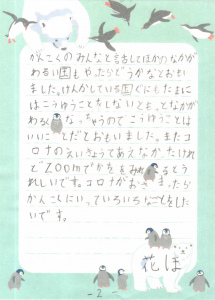 がんこくのみんなと話してほかのなかが
わるい国もやったらどうかなとおもい
ました。けんかしている国ぐにもたまに
はこうゆうことをしないとも、となかが
わるくなっちゃうのでこうゆうことは
いいことだとおもいました。またコ
ロナのえいきょうであえなかったけれ
どZoomでかおをみれるとう
れしいです。コロナがおさまったら
かんこくにいていろいろなことをした
いです。
花ほ
-2-